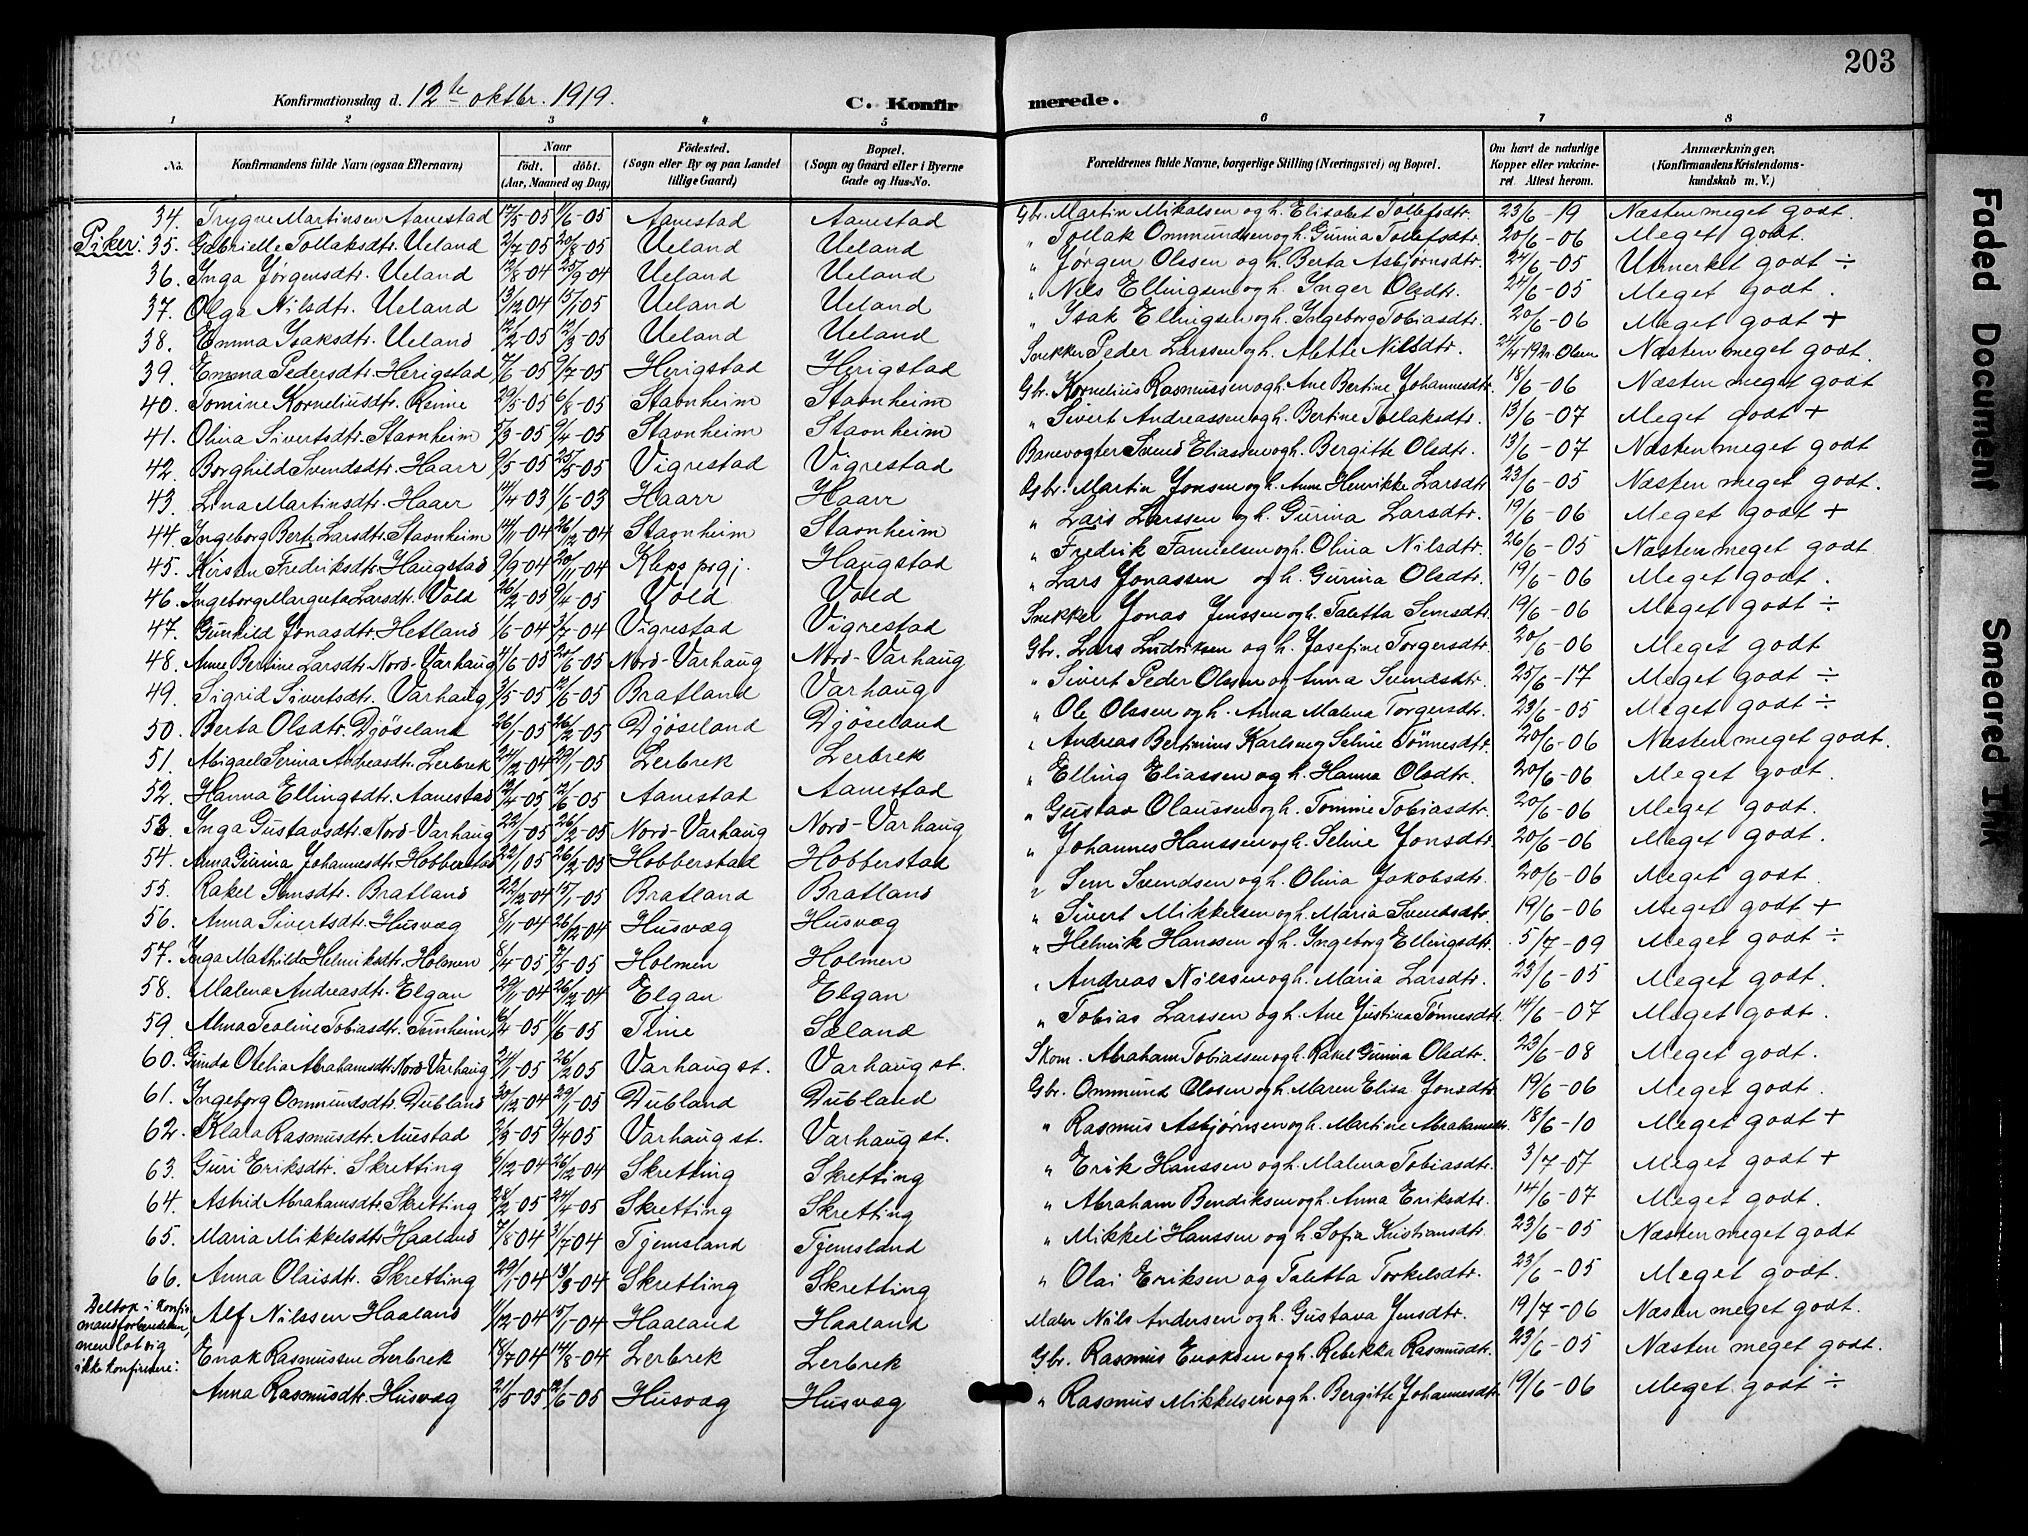 203
Konfirmationsdag d. 12te oktbr. 1919. C. Konfirmerede.
1 2 3 4 5 6 7 8
No. | Konfirmandens fulde Navn (ogsaa Efternavn) | Naar født. døbt. (Aar, Maaned og Dag) | Fødested. (Sogn eller By og paa Landet tillige Gaard) | Bopæl. (Sogn og Gaard eller i Byerne Gade og Hus-No. | Forældrenes fulde Navne, borgerlige Stilling (Næringsvei) og Bopæl. | Om havt de naturlige Kopper eller vakcineret. Attest herom. | Anmærkninger, (Konfirmandens Kristendomskundskab m. V.)
34. Trygve Martinsen Aanestad 17/5-05 11/6-05 Aanestad Aanestad Gbr. Martin Mikalsen og h. Elisabet Tollefsdtr. 23/6-19 Næsten meget godt.
Piker: 35. Gabrielle Tollaksdtr. Ueland 2/7-05 20/8-05 Ueland Ueland " Tollak Ommundsen og h. Gurina Tollefsdtr. 20/6-06 Meget godt.
36. Inga Jørgensdtr. Ueland 12/8-04 25/9-04 Ueland Ueland " Jørgen Olssen og h. Berta Asbjørnsdtr. 24/6-05 Utmerket godt ÷
37. Olga Nilsdtr. Ueland 13/12 04 15/1 05 Ueland Ueland " Nils Ellingsen og h. Inger Olsdtr. 24/6-05 Meget godt.
38. Emma Isaksdtr. Ueland 12/2-05 12/3-05 Ueland Ueland " Isak Ellingsen og h. Ingeborg Tobiasdtr. 20/6-06 Meget godt +
39. Emma Pedersdtr. Herigstad 7/6-05 9/7-05 Herigstad Herigstad Snekker Peder Larssen og h. Alette Nilsdtr. Olsen Næsten meget godt.
40. Tomine Korneliusdtr. Reime 29/5-05 6/8-05 Stavnheim Stavnheim Gbr. Kornelius Rasmussen og h. Ane Bertine Johannesdtr. 18/6-06 Næsten meget godt
41. Olina Sivertsdtr. Stavnheim 5/3-05 9/4-05 Stavnheim Stavnheim " Sivert Andreassen og h. Bertine Tollaksdtr. 13/6-07 Meget godt +
42. Borghild Svendsdtr. Haarr 9/5-05 25/5-05 Vigrestad Vigrestad Banevogter Svend Eliassen og h. Bergitte Olsdtr. 13/6-07 Næsten meget godt
43. Lina Martinsdtr. Haarr 14/4-03 1/6-03 Haarr Haarr Gbr. Martin Jonsen og h. Anne Henrikke Larsdtr 23/6-05 Næsten meget godt.
44. Ingeborg Berte Larsdtr. Stavnheim 14/11-04 26/12-04 Stavnheim Stavnheim " Lars Larssen og h. Gurina Larsdtr. 19/6-06 Meget godt +
45. Kirsten Fredriksdtr. Haugstad 9/9-04 20/11-04 Klepp prgj. Haugstad " Fredrik Samuelsen og h. Olina Nilsdtr. 26/6-05 Næsten meget godt
46. Ingeborg Margreta Larsdtr. Vold 26/2-05 9/4-05 Vold Vold " Lars Jonassen og h. Gurina Olsdtr. 19/6-06 Meget godt.
47. Gunhild Jonasdtr. Hetland 1/6-04 3/7-04 Vigrestad Vigrestad Snekker Jonas Jenssen og h. Taletta Semsdtr. 19/6-06 Meget godt ÷
48. Anne Bertine Larsdtr. Nord-Varhaug 4/6-05 25/6-05 Nord-Varhaug Nord-Varhaug Gbr. Lars Ludviksen og h. Josefine Torgersdtr. 20/6-06 Meget godt
49. Sigrid Sivertsdtr. Varhaug 3/5-05 12/6-05 Bratland Varhaug " Sivert Peder Olssen og Anna Svendsdtr. 25/6-17 Meget godt ÷
50. Berta Olsdtr. Djøseland 26/1-05 26/2-05 Djøseland Djøseland " Ole Olssen og h. Anna Malena Torgersdtr. 23/6-05 Meget godt ÷
51. Abigael Serina Andreasdtr. Lerbrek 24/12-04 29/1-05 Lerbrek Lerbrek " Andreas Bertinius Karlsen og Seline Tønnesdtr. 20/6-06 Næsten meget godt.
52. Hanna Ellingsdtr. Aanestad 12/4-05 12/6-05 Aanestad Aanestad " Elling Eliassen og h. Hanna Olsdtr. 20/6-06 Meget godt.
53. Inga Gustavsdtr. Nord-Varhaug 22/1-05 26/2-05 Nord-Varhaug Nord-Varhaug " Gustav Olaussen og h. Tomine Tobiasdtr. 20/6-06 Meget godt.
54. Anna Gurina Johannesdtr. Hobberstad 22/1 05 26/2-05 Hobberstad Hobberstad " Johannes Hanssen og h. Seline Jonsdtr. 20/6-06 Meget godt.
55. Rakel Semsdtr. Bratland 22/12 04 15/1-05 Bratland Bratland " Sem Svendsen og h. Olina Jakobsdtr. 20/6-06 Meget godt.
56. Anna Sivertsdtr. Husvæg 8/11-04 26/12-04 Husvæg Husvæg " Sivert Mikkelsen og h. Maria Svendsdtr. 19/6-06 Meget godt +
57. Inga Mathilde Helmiksdtr. Holmen 8/4-05 7/5-05 Holmen Holmen " Helmik Hanssen og h. Ingeborg Ellingsdtr. 5/7-09 Meget godt ÷
58. Malena Andreasdtr. Elgan 29/11-04 26/12-04 Elgan Elgan " Andreas Nilssen og h. Maria Larsdtr. 23/6-05 Meget godt.
59. Alma Teoline Tobiasdtr. Tunheim 6/4-05 11/6-05 Time Søland " Tobias Larssen og h. Ane Justina Tønnesdtr. 14/6-07 Meget godt.
60. Gunda Otelia Abrahamsdtr. Nord-Varhaug 24/1-05 26/2 05 Varhaug st. Varhaug st. Skom. Abraham Tobiassen og h. Rakel Gurina Olsdtr. 23/6-08 Meget godt.
61. Ingeborg Ommundsdtr. Dubland 30/12-04 29/1-05 Dubland Dubland Gbr. Ommund Olssen og h. Maren Elisa Jonsdtr 19/6-06 Meget godt.
62. Klara Rasmusdtr. Auestad 2/3-05 9/4 05 Varhaug st. Varhaug st. " Rasmus Asbjørnsen og h. Martine Abrahamsdtr. 18/6-10 Meget godt +
63. Guri Eriksdtr. Skretting 6/12-04 26/12-04 Skretting Skretting " Erik Hanssen og h. Malena Tobiasdtr. 3/7-07 Meget godt +
64. Astrid Abrahamsdtr. Skretting 28/2-05 24/4-05 Skretting Skretting " Abraham Bendiksen og h. Anna Eriksdtr. 14/6-07 Meget godt.
65. Maria Mikkelsdtr. Haaland 7/8 04 31/7 04 Tjemsland Tjemsland " Mikkel Hanssen og h. Sofia Kristiansdtr. 23/6-05 Næsten meget godt
66. Anna Olaisdtr. Skretting 29/1-04 13/3-04 Skretting Skretting " Olai Eriksen og Taletta Torkelsdtr. 23/6-05 Meget godt.
Deltok i konfirmandforberedelsen, men lot sig ikke konfirmere:
Alf Nilssen Haaland 11/12-04 15/1-04 Haaland Haaland Maler Nils Andersen og h. Gustava Jensdtr. 19/7-06 Næsten meget godt.
Enok Rasmussen Lerbrek 18/7 04 14/8-04 Lerbrek Lerbrek Gbr. Rasmus Enoksen og h. Rebekka Rasmusdtr. 23/6-05 Næsten meget godt.
Anna Rasmusdtr. Husvæg 21/5-05 12/6-05 Husvæg Husvæg " Rasmus Mikkelsen og h. Bergitte Johannesdtr. 19/6-06 Meget godt ÷
Faded Document
Smeared Ink